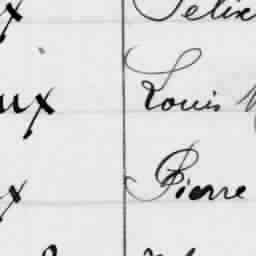 x Felix
ux Louis
x Pierre